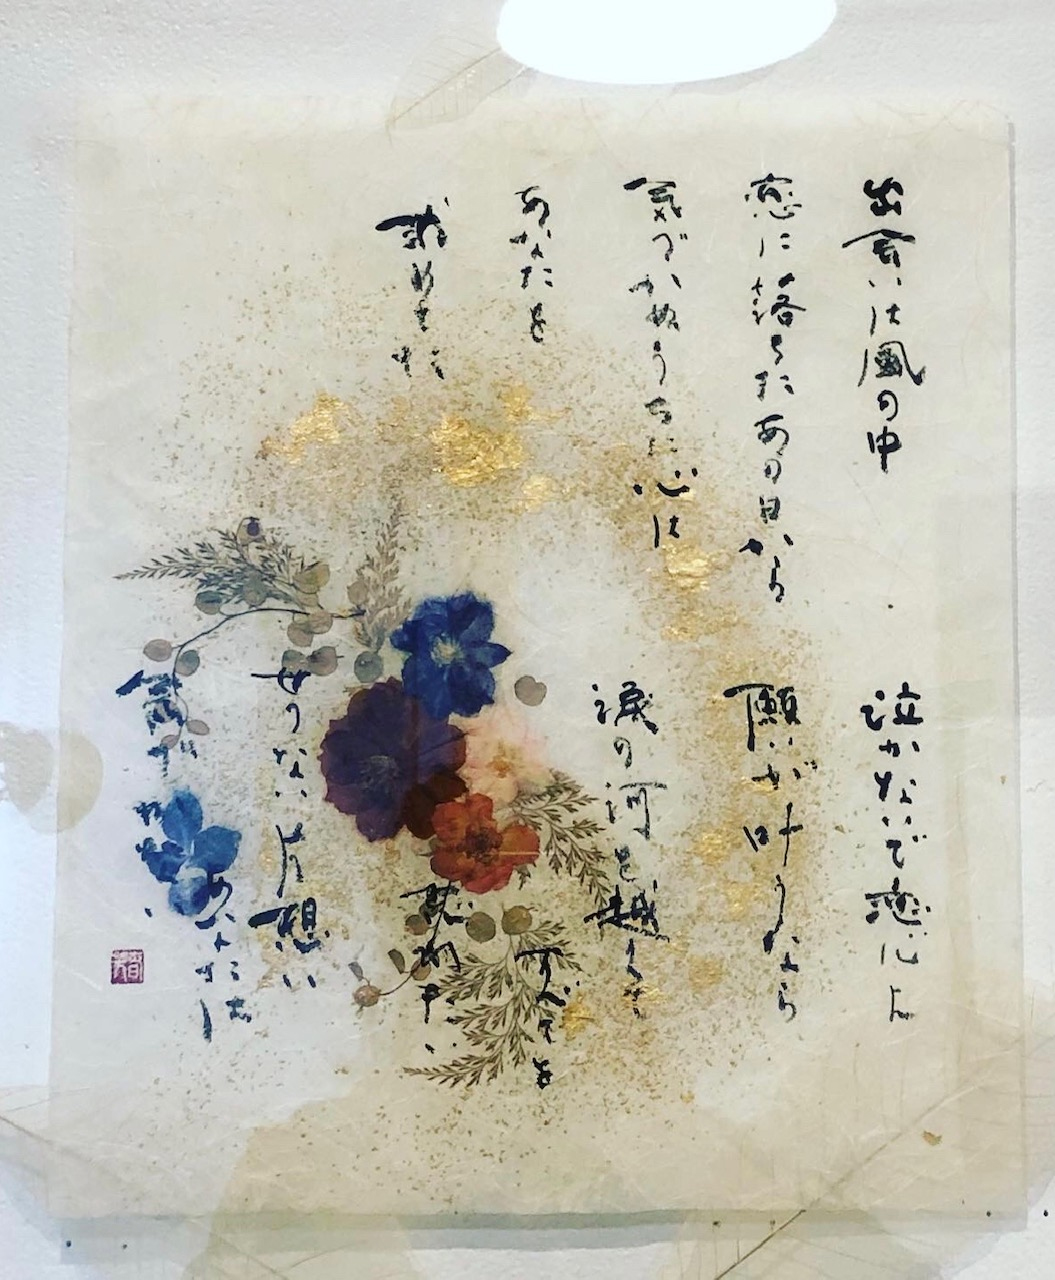 出会いは風の中
恋に落ちたあの日から
気づかぬうちに心は
あなたを
求めてた
泣かないで恋心よ
願いが叶うなら
涙の河を越えて
すべてを
忘れたい
せつない片想い
あなたは
気づかない